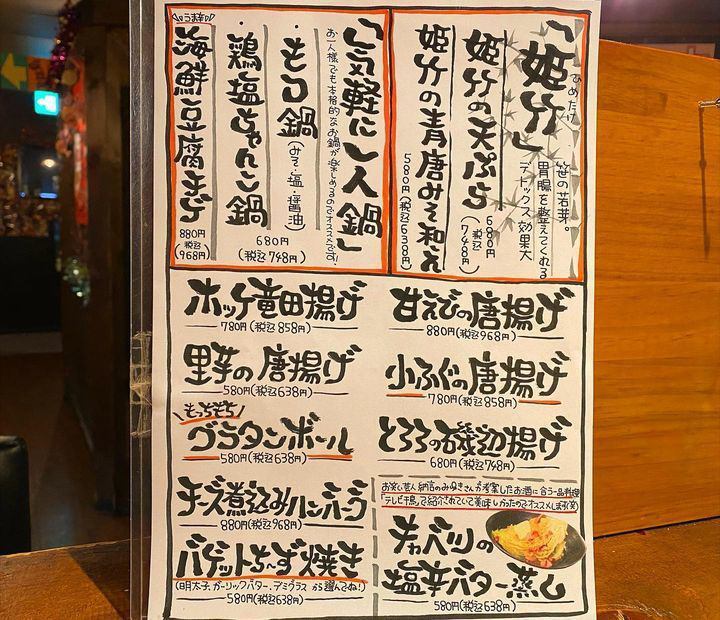 「姫竹」
ひめたけ
笹の若芽。
胃腸を整えてくれる
デトックス効果大
姫竹の天ぷら
680円
(税込748円)
姫竹の青唐みそ和え
580円(税込638円)
「気軽に一人鍋」
お一人様でも本格的なお鍋が楽しめるのでオススメです!
・もつ鍋(みそ・塩・醤油)
・鶏塩ちゃんこ鍋
680円
(税込748円)
うま辛
海鮮豆腐チゲ
880円
(税込968円)
ホッケ竜田揚げ
780円(税込858円)
甘えびの唐揚げ
880円(税込968円)
里芋の唐揚げ
580円(税込638円)
小ふぐの唐揚げ
780円(税込858円)
もっちもち
グラタンボール
580円(税込638円)
とろろの磯辺揚げ
680円(税込748円)
チーズ煮込みハンバーグ
880円(税込968円)
お笑い芸人納言のみゆきさんが考案したお酒に合う一品料理
「テレビ千鳥」で紹介されていて美味しかったのでオススメします(笑)
キャベツの
塩辛バター蒸し
580円(税込638円)
バゲットち〜ず焼き
(明太子、ガーリックバター、デミグラスから選んでね!)
580円(税込638円)